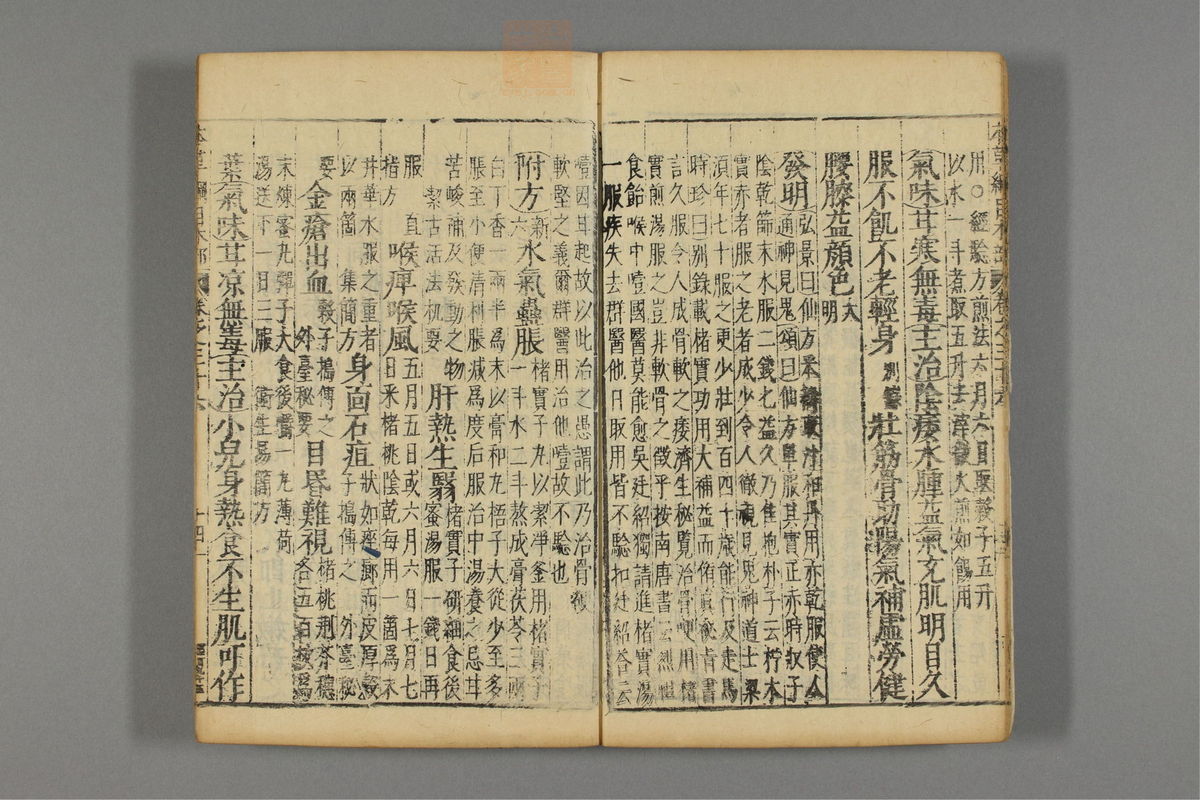 用○經驗方煎法六月六日取穀子五升
以水一斗煮取五升去滓微火煎如餳用
氣味甘寒無毒主治陰痿水腫益氣充肌明目久
服不飢不老輕身別錄壯筋骨助陽氣補虛勞健
腰膝益顏色大明
發明弘景曰仙方
通神見鬼頌曰仙方單服其實正赤時收子
陰乾篩末水服二錢匕益久乃佳抱朴子云柠木
實赤者服之老者成少令人徹視見鬼神道士梁
須年七十服之更少壯到百四十歲能行及走馬
時珍曰別錄載楮實功用大補益而脩真秘旨書
言久服令人成骨軟之痿濟生秘覽治骨哽用楮
實煎湯服之豈非軟骨之徵乎按南唐書云烈祖
食飴喉中噎國醫莫能愈吳廷紹獨請進楮實湯
一服疾失去群醫他日取用皆不驗扣廷紹荅云
噎因甘起故以此治之愚謂此乃治骨哽
軟堅之義爾群醫用治他噎故不驗也
附方新六水氣蠱脹楮實子丸以潔凈釜用楮實子
一斗水二斗熬成膏茯苓三兩
白丁香一兩半為末以膏和丸梧子大從少至多
脹至小便清利脹減為度后服治中湯養之忌甘
苦峻補及發動之物
潔古活法机要
肝熱生翳楮實子研細食後
蜜湯服一錢日再
服
直指方
喉痺喉風五月五日或六月六日七月七
日采楮桃陰乾每用一箇為末
井華水服之重者
以兩箇
集簡方
身面石疽狀如痤癤而皮厚穀
子搗傅之外臺秘
要
金瘡出血穀子搗傅之
外臺秘要
目昏難視楮桃荆芥穗
各五百枚為
末煉蜜丸彈子大食後嚼一丸薄荷
湯送下一日三服
衛生易簡方
葉氣味甘凉無毒主治小兒身熱食不生肌可作